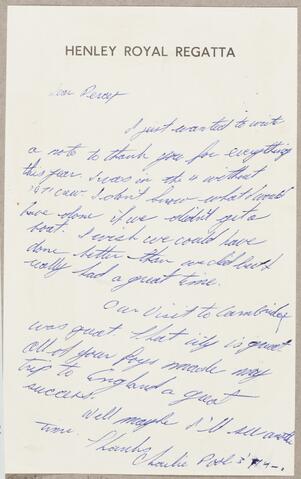 HENLEY ROYAL REGATTA
Dear Percy
I just wanted to write
a note to thank you for everything
this year. I was in the 4 without
I don't know what I would
have done if we didn't get a
boat. I wish we could have
done better than we did but I
really had a great time.
Our visit to Cambridge
was great. That city is great
all of your boys made my
trip to England a great
success.
Well maybe I'll see another
time.
Thanks
Charlie